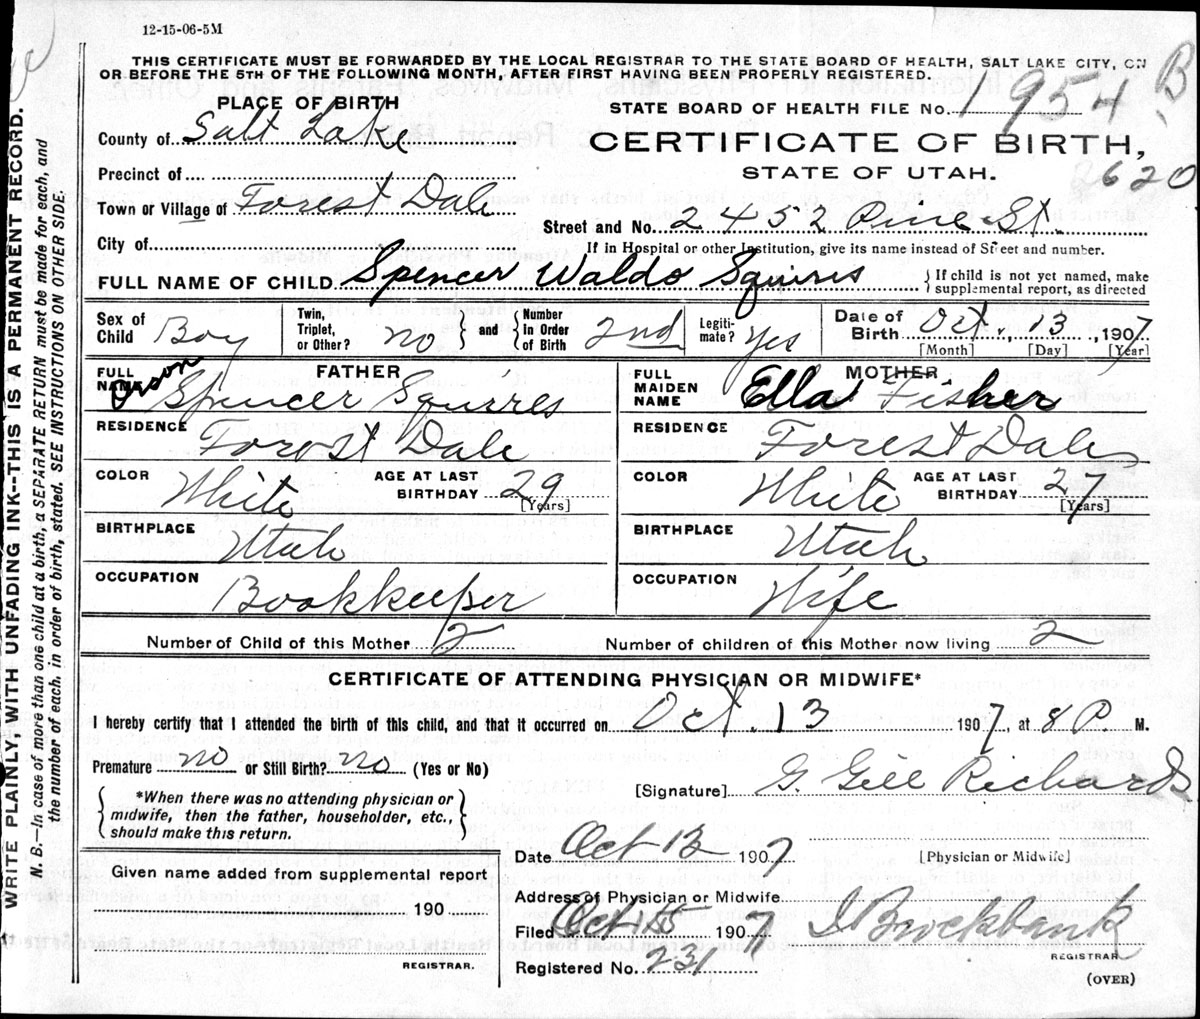 12-15-06-5M
THIS CERTIFICATE MUST BE FORWARDED BY THE LOCAL REGISTRAR TO THE STATE BOARD OF HEALTH, SALT LAKE CITY, ON
OR BEFORE THE 5TH OF THE FOLLOWING MONTH, AFTER FIRST HAVING BEEN PROPERLY REGISTERED.
PLACE OF BIRTH
STATE BOARD OF HEALTH FILE No. 1954 B
County of Salt Lake
CERTIFICATE OF BIRTH,
Precinct of
STATE OF UTAH.
2620
Town or Village of Forest Dale
Street and No. 2452 Pine St.
City of
If in Hospital or other Institution, give its name instead of Street and number.
FULL NAME OF CHILD Spencer Waldo Squires
If child is not yet named, make supplemental report, as directed
Sex of Child Boy
Twin, Triplet, or Other? no
and
Number In Order of Birth 2nd
Legitimate? Yes
Date of Birth Oct. 13, 1907
[Month] [Day] [Year]
FATHER
FULL NAME Orson Spencer Squires
RESIDENCE Forest Dale
COLOR White
AGE AT LAST BIRTHDAY 29
[Years]
BIRTHPLACE Utah
OCCUPATION Bookkeeper
MOTHER
FULL MAIDEN NAME Ella Fisher
RESIDENCE Forest Dale
COLOR White
AGE AT LAST BIRTHDAY 27
[Years]
BIRTHPLACE Utah
OCCUPATION Wife
Number of Child of this Mother 2
Number of children of this Mother now living 2
CERTIFICATE OF ATTENDING PHYSICIAN OR MIDWIFE*
I hereby certify that I attended the birth of this child, and that it occurred on Oct. 13 1907, at 8 P M.
Premature no or Still Birth? no (Yes or No)
[Signature] G. Gill Richards
*When there was no attending physician or
midwife, then the father, householder, etc.,
should make this return.
Date Oct 13 1907
[Physician or Midwife]
Given name added from supplemental report
190
REGISTRAR.
Address of Physician or Midwife
Filed Oct 1907
Brockbank
REGISTRAR
Registered No. 231
(OVER)
WRITE PLAINLY, WITH UNFADING INK--THIS IS A PERMANENT RECORD.
N. B.--In case of more than one child at a birth, a SEPARATE RETURN must be made for each, and
the number of each, in order of birth, stated. SEE INSTRUCTIONS ON OTHER SIDE.